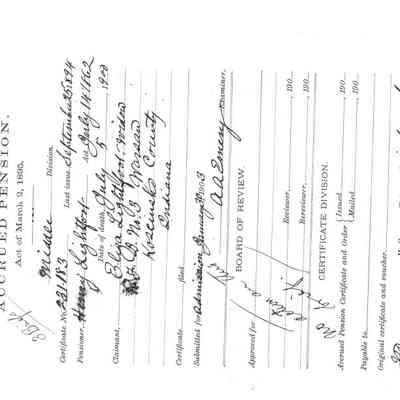 ACCRUED PENSION.
Act of March 2, 1895.
Middle Division.
Certificate No. 231183 Last issue, September 25 1894
Pensioner, Henry Lightfoot Act July 14, 1862
Date of death, July 5, 1900
Claimant, Eliza Lightfoot, widow
R.F.D. No 3 Warsaw
Kosciusko County
Indiana
Certificate filed
Submitted for Admission January 1903
Examiner.
BOARD OF REVIEW.
Approved for
No action on this
brief.
Reviewer. , 190
Rereviewer. , 190
CERTIFICATE DIVISION.
Accrued Pension Certificate and Order { Issued , 190
Mailed , 190
Payable to
Original certificate and voucher